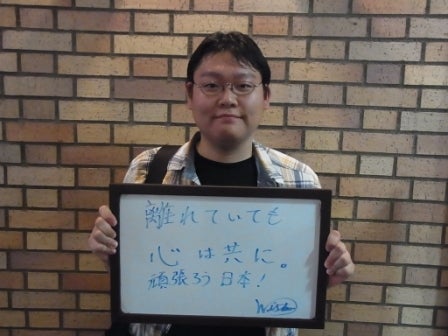 離れていても
心は共に。
頑張ろう日本!